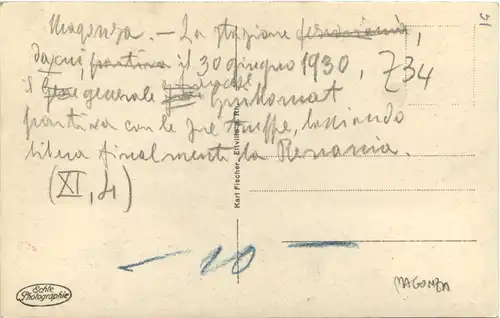 Magonza. — La stazione ferroviaria,
da cui, partiva il 30 giugno 1930, Z34
il generale francese Guillaumat
partiva con le sue truppe, lasciando
libera finalmente la Renania.
(XI, 4)
Karl Fischer, Eltville a. Rh.
— 10 —
Echte
Photographie
MAGONZA